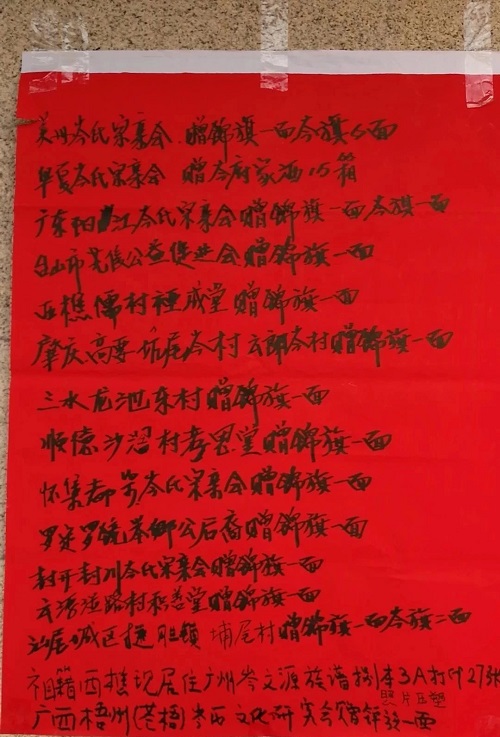 岑氏宗亲会 赠锦旗一面岑旗6面
华夏岑氏宗亲会 赠岑府家酒15箱
广东阳江岑氏宗亲会赠锦旗一面岑旗一面
台山市光仪公益促进会赠锦旗一面
西樵儒村种成堂赠锦旗一面
肇庆高要坑尾岑村云郎岑村赠锦旗一面
三水龙池东村赠锦旗一面
顺德沙滘村孝思堂赠锦旗一面
怀集都 岑氏宗亲会赠锦旗一面
罗定罗镜 乡公后裔赠锦旗一面
封开封川岑氏宗亲会赠锦旗一面
云浮 路村积善堂赠锦旗一面
汕尾城区捷胜镇埔尾村赠锦旗一面岑旗二面
祖籍西樵现居住广州岑文源族谱 本3A打印27张
照片压塑
广西梧州(苍梧)岑氏文化研究会赠锦旗一面